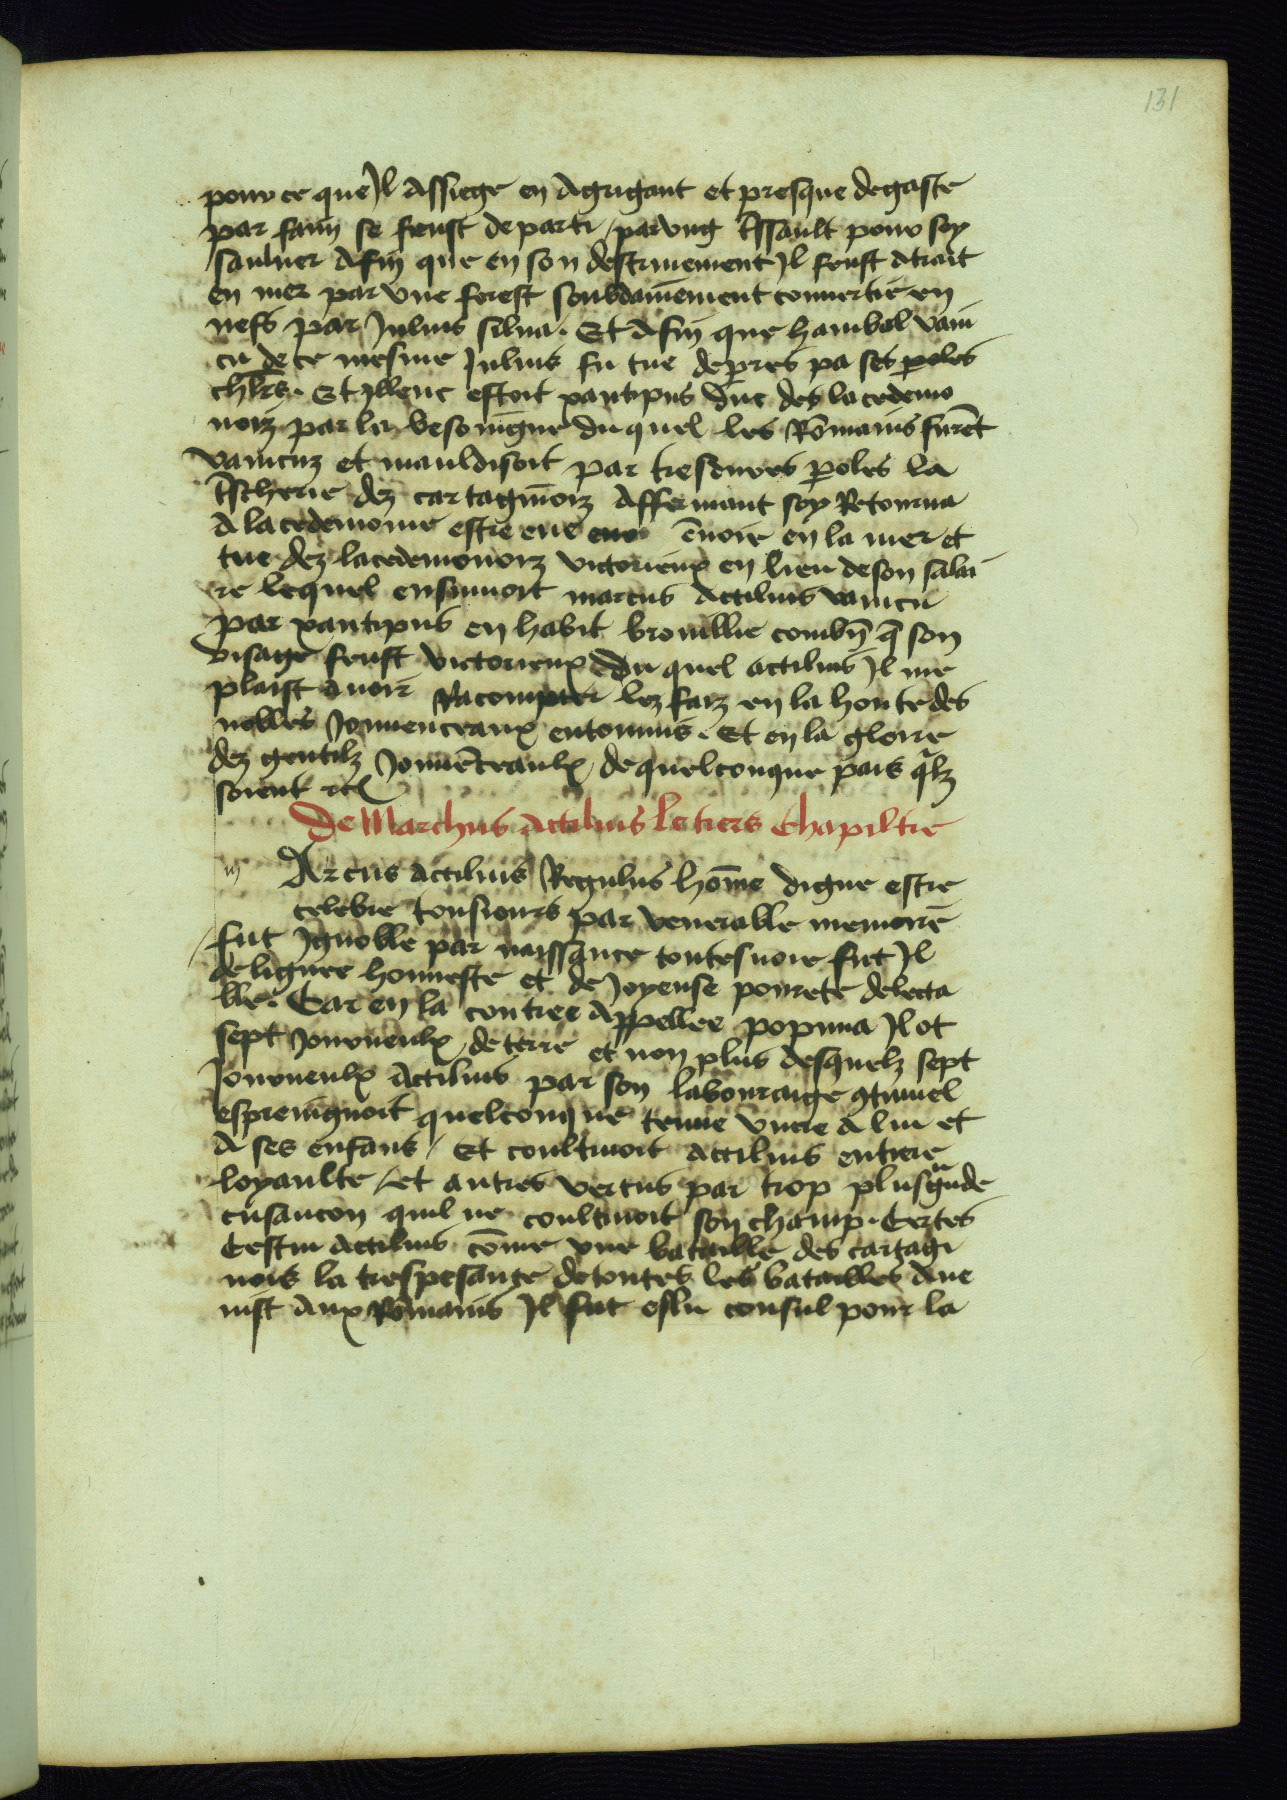 131
pour ce que Il assiege en agrigant et presque degaste
par faim se feust departi / par ung assault pour soy
sauluer afin que en son destruiement Il feust atrait
en mer par une forest soubdainement conuertie en
nefs par Julius silua. Et afin que hanibal vain
cu de ce mesme Julius fu tue de pres pa ses poles
chlrs. Et Illeuc estoit xantipus duc des lacedemo
noiz par la besoingne du quel les Romains furēt
vaincuz et mauldisoit par tresdures poles la
tscherie dez cartaginoiz affermant soy Retourna
a lacedemonie estre eue ēuoie en la mer et
tue dez lacedemonoiz victorieux en lieu de son salai
re lequel ensuiuoit marcus actilius vaincu
par xantipus en habit brouillie combn̄ q̄ son
visage feust victorieux du quel actilius Il me
plaist auoir Racompter lez faiz en la honte des
nobles Jouuenceaux entomnis. Et en la gloire
dez gentilz Jouuēceaulx de quelconque pais qlz
soient etc
De Marchus Actilius le tiers chapiltre
m Arcus actilius Regulus hōme digne estre
celebre tousiours par venerable memoire
fut Ignoble par naissance toutesuoie fut Il
de lignee honneste et de Joyeuse pourete delecta
ble. Car en la contree appellee popinia Il ot
sept Jourueulx de terre et non plus desquelz sept
Jourueulx Actilius par son labouraige 9tinuel
espreingnoit quelconque tenue vncie a lui et
a ses enfans / Et coultiuoit actilius entiere
loyaulte / et autres vertus par trop plus gn̄de
cusancon quil ne coultiuoit son champ. Certes
Cestui actilius cōme vne bataille des cartagi
nois la trespesante de toutes les batailles aue
nist aux Romains Il fut eslu consul pour la